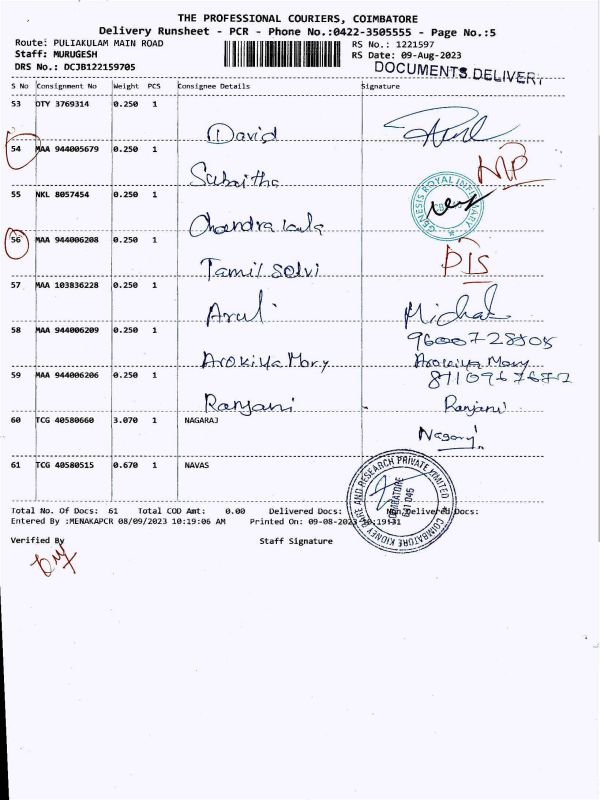 THE PROFESSIONAL COURIERS, COIMBATORE
Delivery Runsheet - PCR - Phone No.:0422-3505555 - Page No.:5
Route: PULIAKULAM MAIN ROAD RS No.: 1221597
Staff: MURUGESH RS Date: 09-Aug-2023
DRS No.: DCJB122159705 DOCUMENTS DELIVER
S No Consignment No Weight PCS Consignee Details Signature
53 OTY 3769314 0.250 1
David
54 MAA 944005679 0.250 1
Sabaitha MP
55 NKL 8057454 0.250 1
GENESIS ROYAL INFIRMARY
Chandra kala
56 MAA 944006208 0.250 1
Tamil Selvi DIS
57 MAA 103836228 0.250 1
Arul Michal
58 MAA 944006209 0.250 1 9600728505
Arokiya Mary Arokiya Mary
59 MAA 944006206 0.250 1
Ranjani Ranjani
60 TCG 40580660 3.070 1 NAGARAJ
Nagaraj.
61 TCG 40580515 0.670 1 NAVAS
COIMBATORE KIDNEY CARE AND RESEARCH PRIVATE LIMITED
COIMBATORE
641 045
Total No. Of Docs: 61 Total COD Amt: 0.00 Delivered Docs: Non Delivered Docs:
Entered By :MENAKAPCR 08/09/2023 10:19:06 AM Printed On: 09-08-2023 10:19:31
Verified By Staff Signature